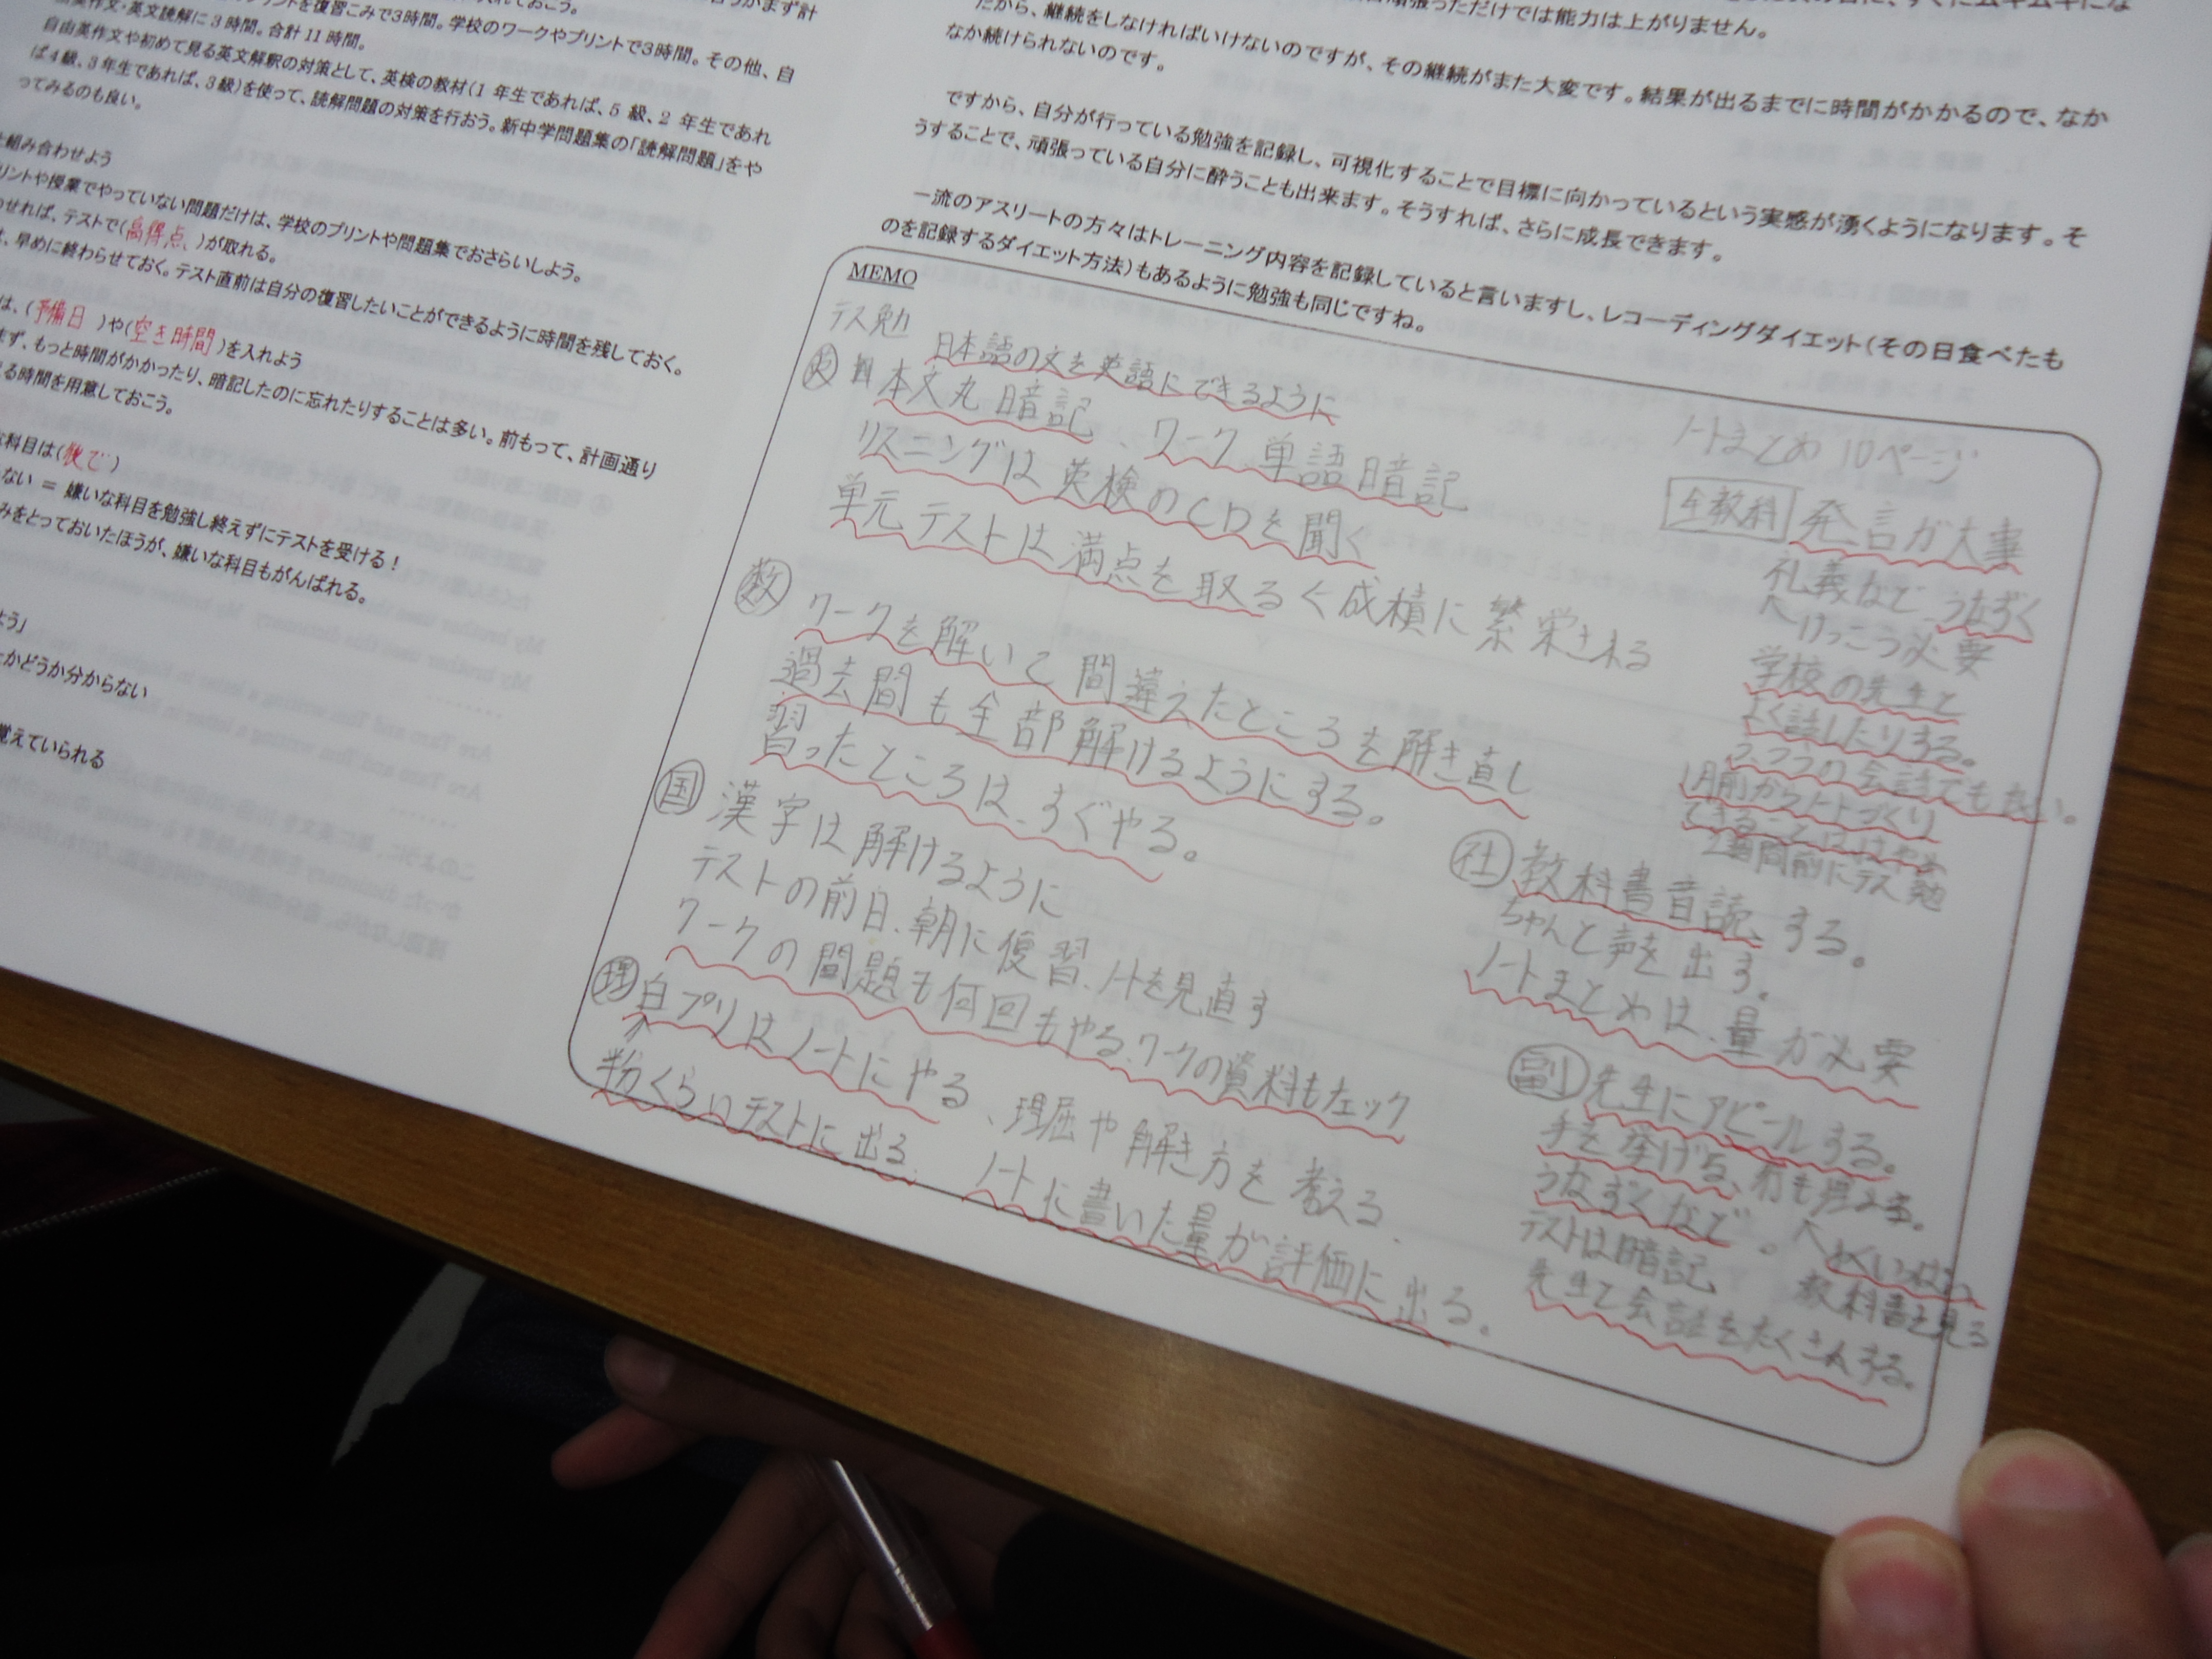 プリントを復習こみで3時間。学校のワークやプリントで3時間。その他、自
由英作文・英文読解に3時間。合計11時間。
自由英作文や初めて見る英文解釈の対策として、英検の教材(1年生であれば、5級、2年生であれ
ば4級、3年生であれば、3級)を使って、読解問題の対策を行おう。新中学問題集の「読解問題」をや
ってみるのも良い。
組み合わせよう
リントや授業でやっていない問題だけは、学校のプリントや問題集でおさらいしよう。
わせれば、テストで(高得点、)が取れる。
早めに終わらせておく。テスト直前は自分の復習したいことができるように時間を残しておく。
は、(予備日)や(空き時間)を入れよう
まず、もっと時間がかかったり、暗記したのに忘れたりすることは多い。前もって、計画通り
る時間を用意しておこう。
科目は(後で)
ない = 嫌いな科目を勉強し終えずにテストを受ける!
みをとっておいたほうが、嫌いな科目もがんばれる。
よう」
かどうか分からない
覚えていられる
頑張っただけでは能力は上がりません。
だから、継続をしなければいけないのですが、その継続がまた大変です。結果が出るまでに時間がかかるので、なか
なか続けられないのです。
ですから、自分が行っている勉強を記録し、可視化することで目標に向かっているという実感が湧くようになります。そ
うすることで、頑張っている自分に酔うことも出来ます。そうすれば、さらに成長できます。
一流のアスリートの方々はトレーニング内容を記録していると言いますし、レコーディングダイエット(その日食べたも
のを記録するダイエット方法)もあるように勉強も同じですね。
MEMO
テス勉
日本語の文を英語にできるように
英 本文丸暗記、ワーク 単語暗記
リスニングは英検のCDを聞く
単元テストは満点を取る<成績に繁栄される
数 ワークを解いて間違えたところを解き直し
過去問も全部解けるようにする。
習ったところは、すぐやる。
国 漢字は解けるように
テストの前日、朝に復習、ノートを見直す
ワークの問題も何回もやる、ワークの資料もチェック
理 白プリはノートにやる、理屈や解き方を考える、
半分くらいテストに出る、ノートに書いた量が評価に出る。
ノートまとめ10ページ
全教科 発言が大事
礼義など、うなずく
けっこう必要
学校の先生と
よく話したりする。
1月前からノートづくり
2週間前にテス勉
社 教科書音読する。
ちゃんと声を出す。
ノートまとめは、量が必要
副 先生にアピールする。
手を挙げる、
うなずくなど。
テストは暗記
教科書を見る
先生と会話をたくさんする。